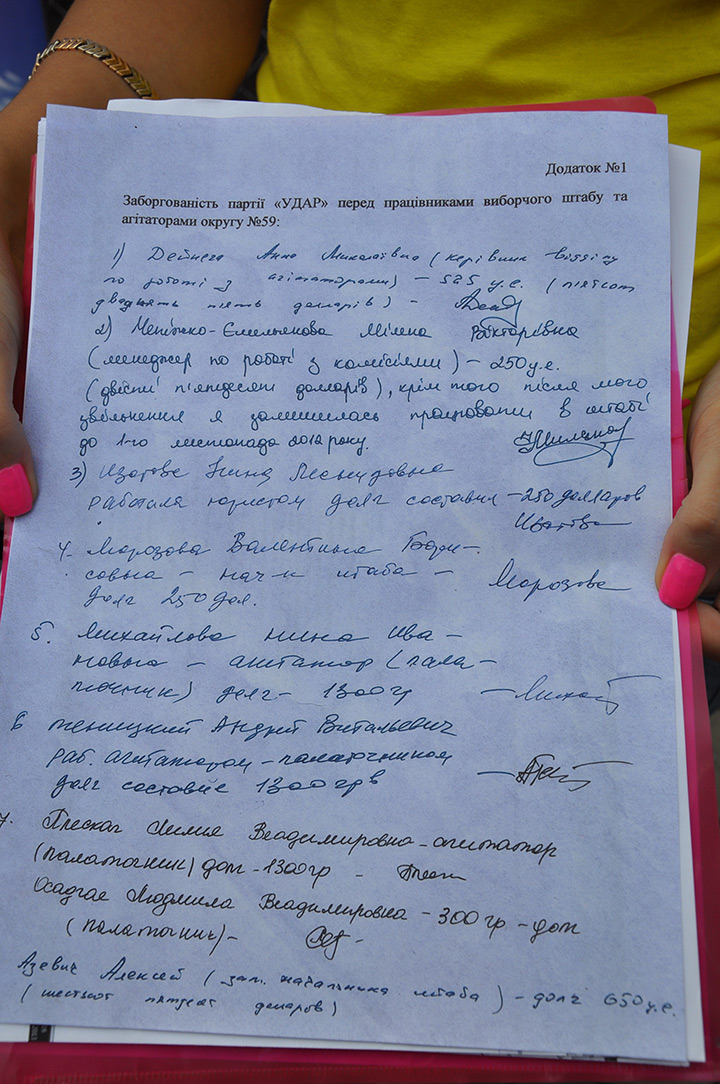 Додаток №1
Заборгованість партії «УДАР» перед працівниками виборчого штабу та
агітаторами округу №59:
1) Дейнега Анна Миколаївна (керівник відділу
по роботі з агітаторами) – 525 у.е. (п'ятсот
двадцять п'ять доларів) –
2) Меніжко-Ємельянова Мілена Вікторівна
(менеджер по роботі з комісіями) – 250 у.е.
(двісті п'ятдесят долларів), крім того після мого
звільнення я залишилась працювати в штабі
до 1-го листопада 2012 року.
3) Изотова Леонидовна
работала юристом долг составил – 250 долларов
4. Морозова Валентина Бори-
совна – нач-к штаба – Морозова
долг 250 дол.
5. Михайлова Нина Ива-
новна – агитатор (пала-
точник) долг – 1300 гр –
6 Теницкий Андрій Витальевич
раб. агитатором – палаточником
долг составил 1300 грв –
7. Плескач Лилия Владимировна – агитатор
(палаточник) долг – 1300 гр –
Осадчая Людмила Владимировна – 300 гр – долг
(палаточник) –
Азевич Алексей (зам. начальника штаба) – долг 650 у.е.
(шестьсот пятдесят доларов)